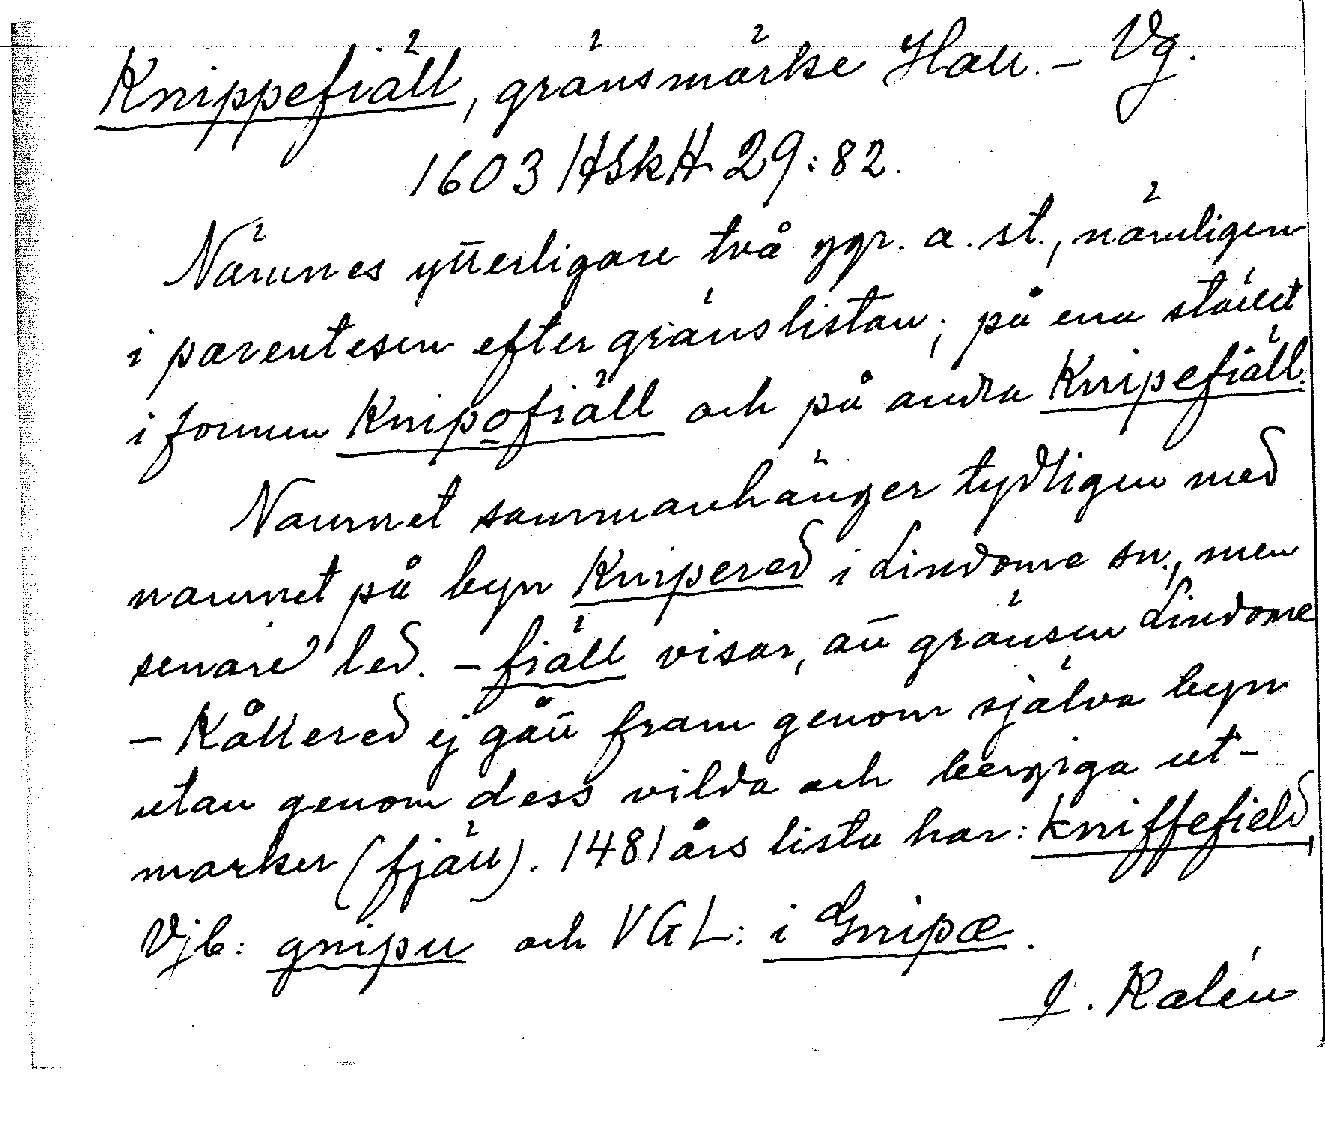 Knippefiäll, gränsmärke Hall. – Vg.
1603 HSkH 29:82.
Nämnes ytterligare två ggr. a. st., nämligen
i parentesen efter gränslistan; på ena stället
i formen Knipofiäll och på andra Knipefiäll.
Namnet sammanhänger tydligen med
namnet på byn Knipered i Lindome sn., men
senare led. -fiäll visar, att gränsen Lindome
– Kållered ej gått fram genom själva byn
utan genom dess vilda och bergiga ut-
marker (fjäll). 1481 års lista har: kniffefield,
Vjb: gnipu och VGL: i Gnipæ.
J. Kalén